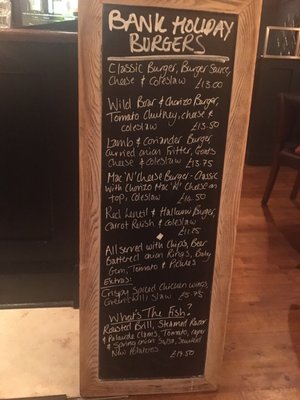 BANK HOLIDAY
BURGERS
Classic Burger, Burger Sauce,
Cheese & Coleslaw £13.00
Wild Boar & Chorizo Burger,
Tomato Chutney, cheese &
coleslaw £13.50
Lamb & Coriander Burger
Curried onion Fritter, Goats
Cheese & coleslaw £13.75
Mac 'N' Cheese Burger - Classic
With Chorizo Mac 'N' Cheese on
top, coleslaw £14.50
Red Lentil & Halloumi Burger,
Carrot Relish & coleslaw
£11.75
All served with Chips, Beer
Battered onion Rings, Baby
Gem, Tomato & Pickles
Extras:
Crispy Spiced Chicken wings,
Green chilli Slaw £5.75
What's The Fish?
Roasted Brill, Steamed Razor
& Palourde Clams, Tomato, caper
& Spring onion Salsa,
New Potatoes
£19.50